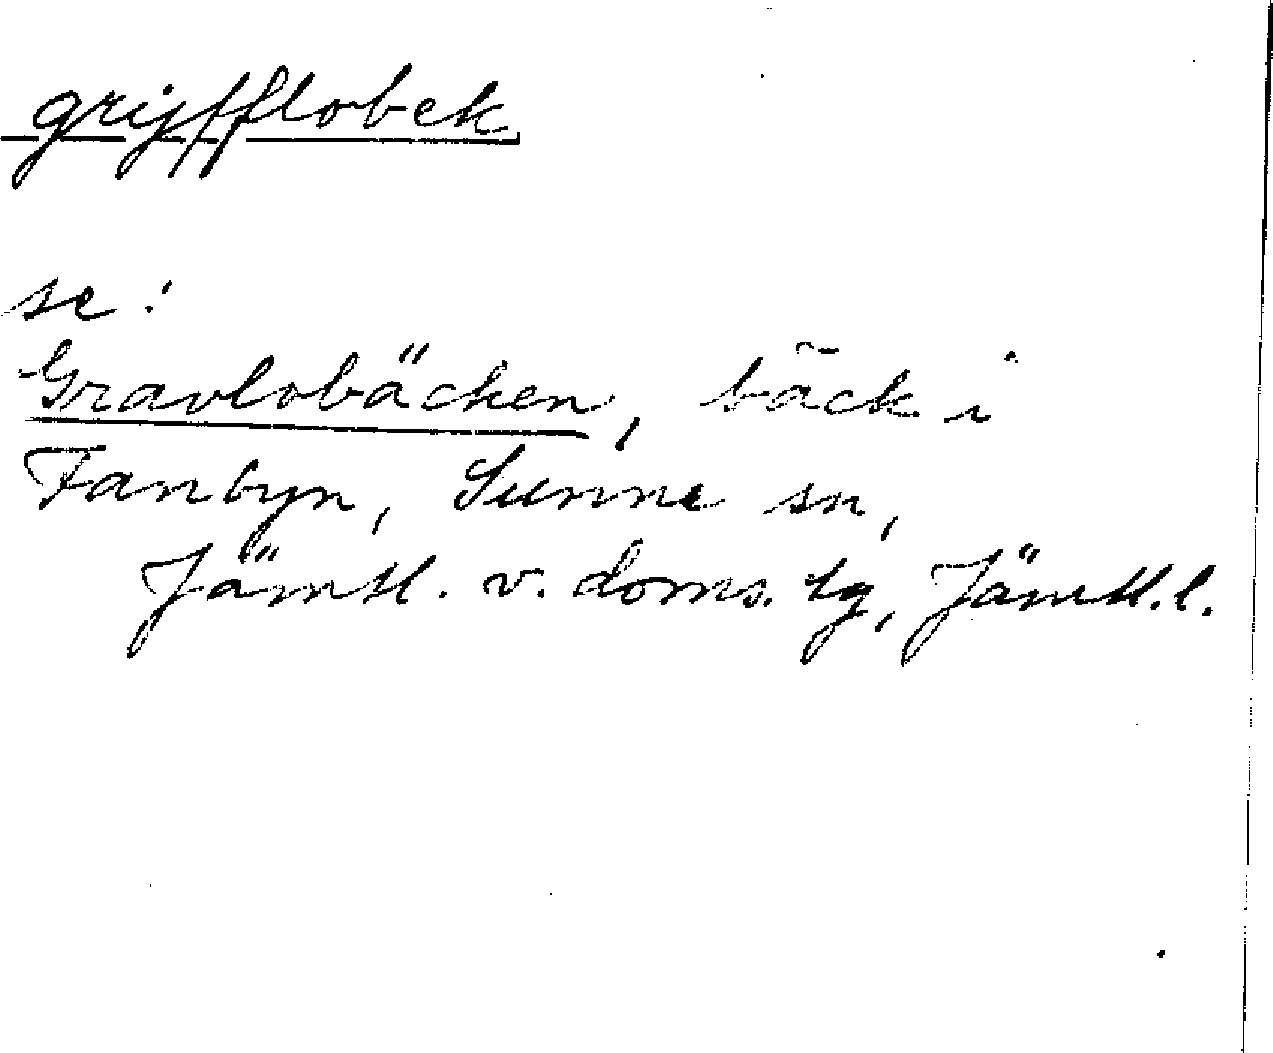 grijfflobek
se:
Gravlobäcken, bäck i
Fanbyn, Sunne sn,
Jämtl. v. doms. tg, Jämtl. l.